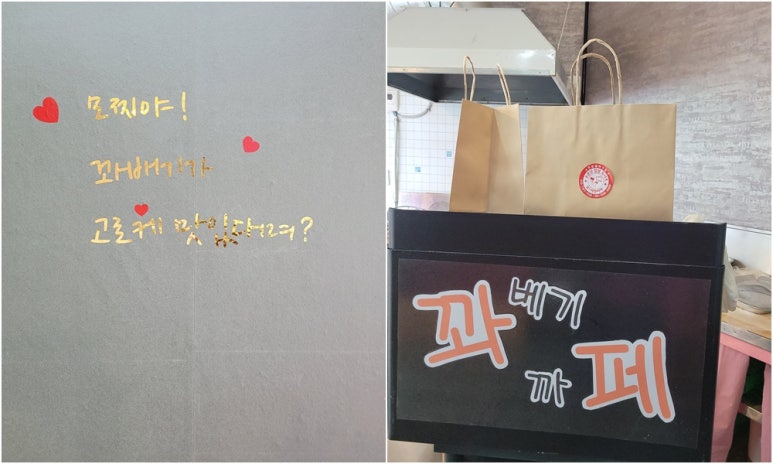 모찌야!
꽈배기가
고로케 맛있대려?
꽈베기
까페